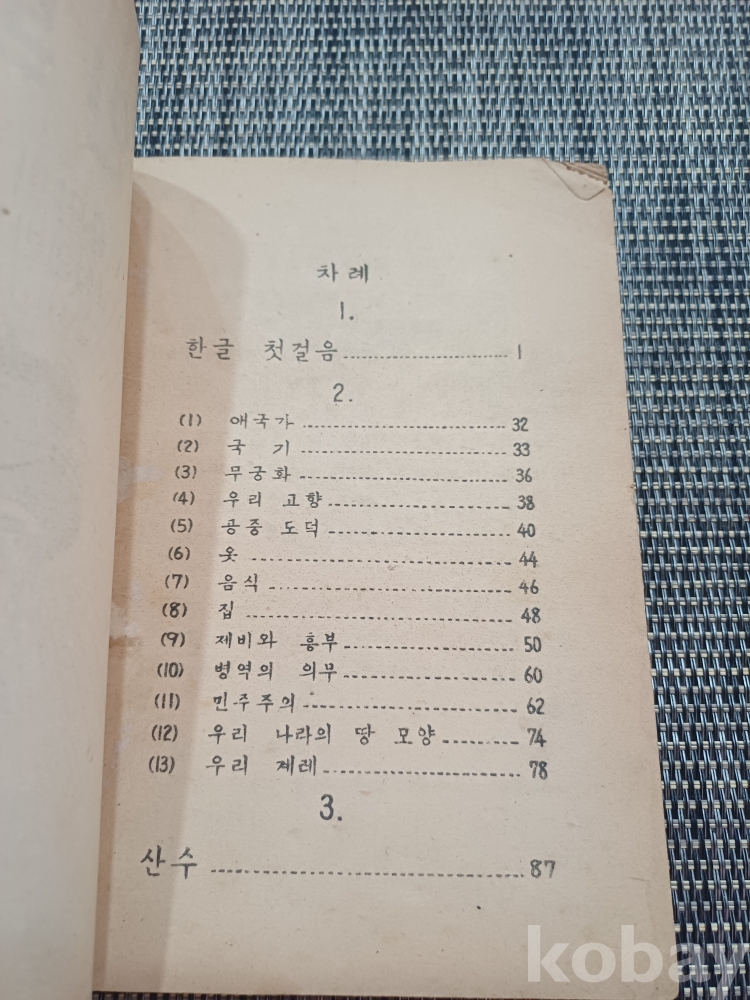 차례
1.
한글 첫걸음 1
2.
(1) 애국가 32
(2) 국 기 33
(3) 무궁화 36
(4) 우리 고향 38
(5) 공중 도덕 40
(6) 옷 44
(7) 음식 46
(8) 집 48
(9) 제비와 흥부 50
(10) 병역의 의무 60
(11) 민주주의 62
(12) 우리 나라의 땅 모양 74
(13) 우리 계레 78
3.
산수 87
kobay